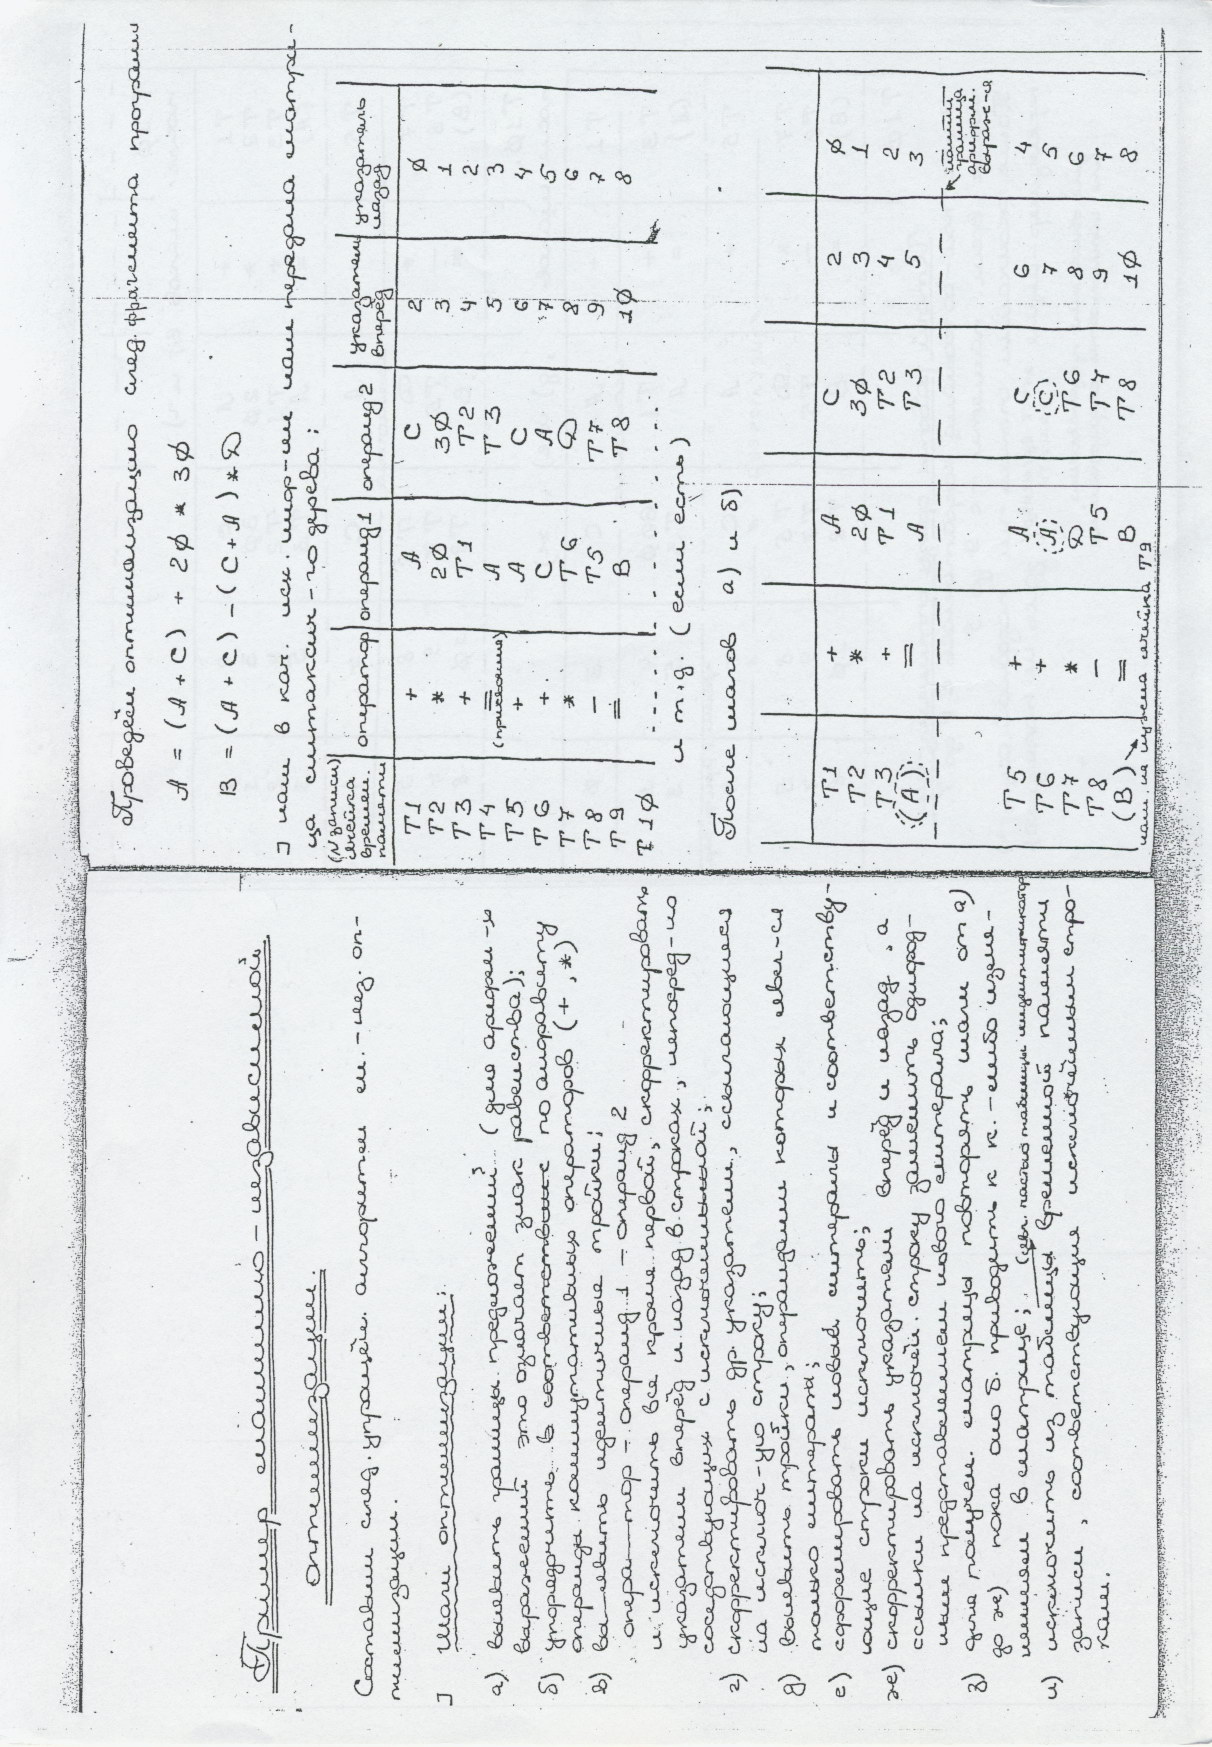 Пример машинно-независимой
оптимизации.
Составим след. упрощён. алгоритм м.-нез. оп-
тимизации.
] Шаги оптимизации:
а) выявить границы предложений (для арифм-х
выражений это означает знак равенства);
б) упорядочить в соответствие по алфавиту
операнды коммутативных операторов (+, *)
в) вы-явить идентичные тройки;
опера-тор - операнд 1 - операнд 2
и исключить все кроме первой, скорректировать
указатели вперёд и назад в строках, непосред-но
соседствующих с исключённой;
г) скорректировать др. указатели, ссылающиеся
на исключ-ую строку;
д) выявить тройки, операндами которых явл-ся
только литералы;
е) сформировать новый литералы и соответству-
ющие строки исключить;
же) скорректировать указатели вперёд и назад, а
ссылки на исключён. строку заменить однород-
ным представлением нового литерала;
з) для получен. матрицы повторять шаги от а)
до же) пока это б. приводить к к.-либо изме-
нениям в матрице; (явл. частью таблицы идентификатор
и) исключить из таблицы временной памяти
записи, соответствующие исключённым стро-
кам.
Проведём оптимизацию след. фрагмента програм
A = (A + C) + 2Ø * 3Ø
B = (A + C) - (C + A) * D
] нам в кач. исх. инф-ии нам передана матри-
ца синтаксич-го дерева:
(№ записи) ячейка времен. памяти оператор операнд 1 операнд 2 указатель вперёд указатель назад
T1 + A C 2 Ø
T2 * 2Ø 3Ø 3 1
T3 + T1 T2 4 2
T4 = (присвоение) A T3 5 3
T5 + A C 6 4
T6 + C A 7 5
T7 * T6 D 8 6
T8 - T5 T7 9 7
T9 = B T8 1Ø 8
T1Ø
и т.д. (если есть)
После шагов а) и б)
T1 + A C 2 Ø
T2 * 2Ø 3Ø 3 1
T3 + T1 T2 4 2
(A) = A T3 5 3
граница арифм. выраж-я
T5 + A C 6 4
T6 + A C 7 5
T7 * D T6 8 6
T8 - T5 T7 9 7
(B) = B T8 1Ø 8
нам не нужна ячейка T9